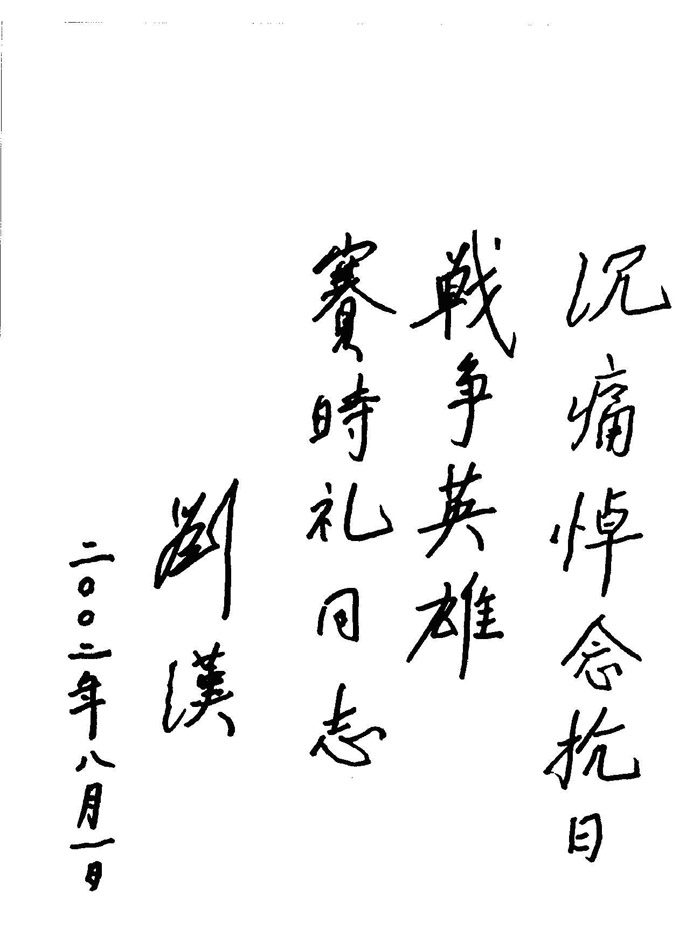 沉痛悼念抗日
戦争英雄
賽時礼同志
劉漢
二〇〇二年八月一日